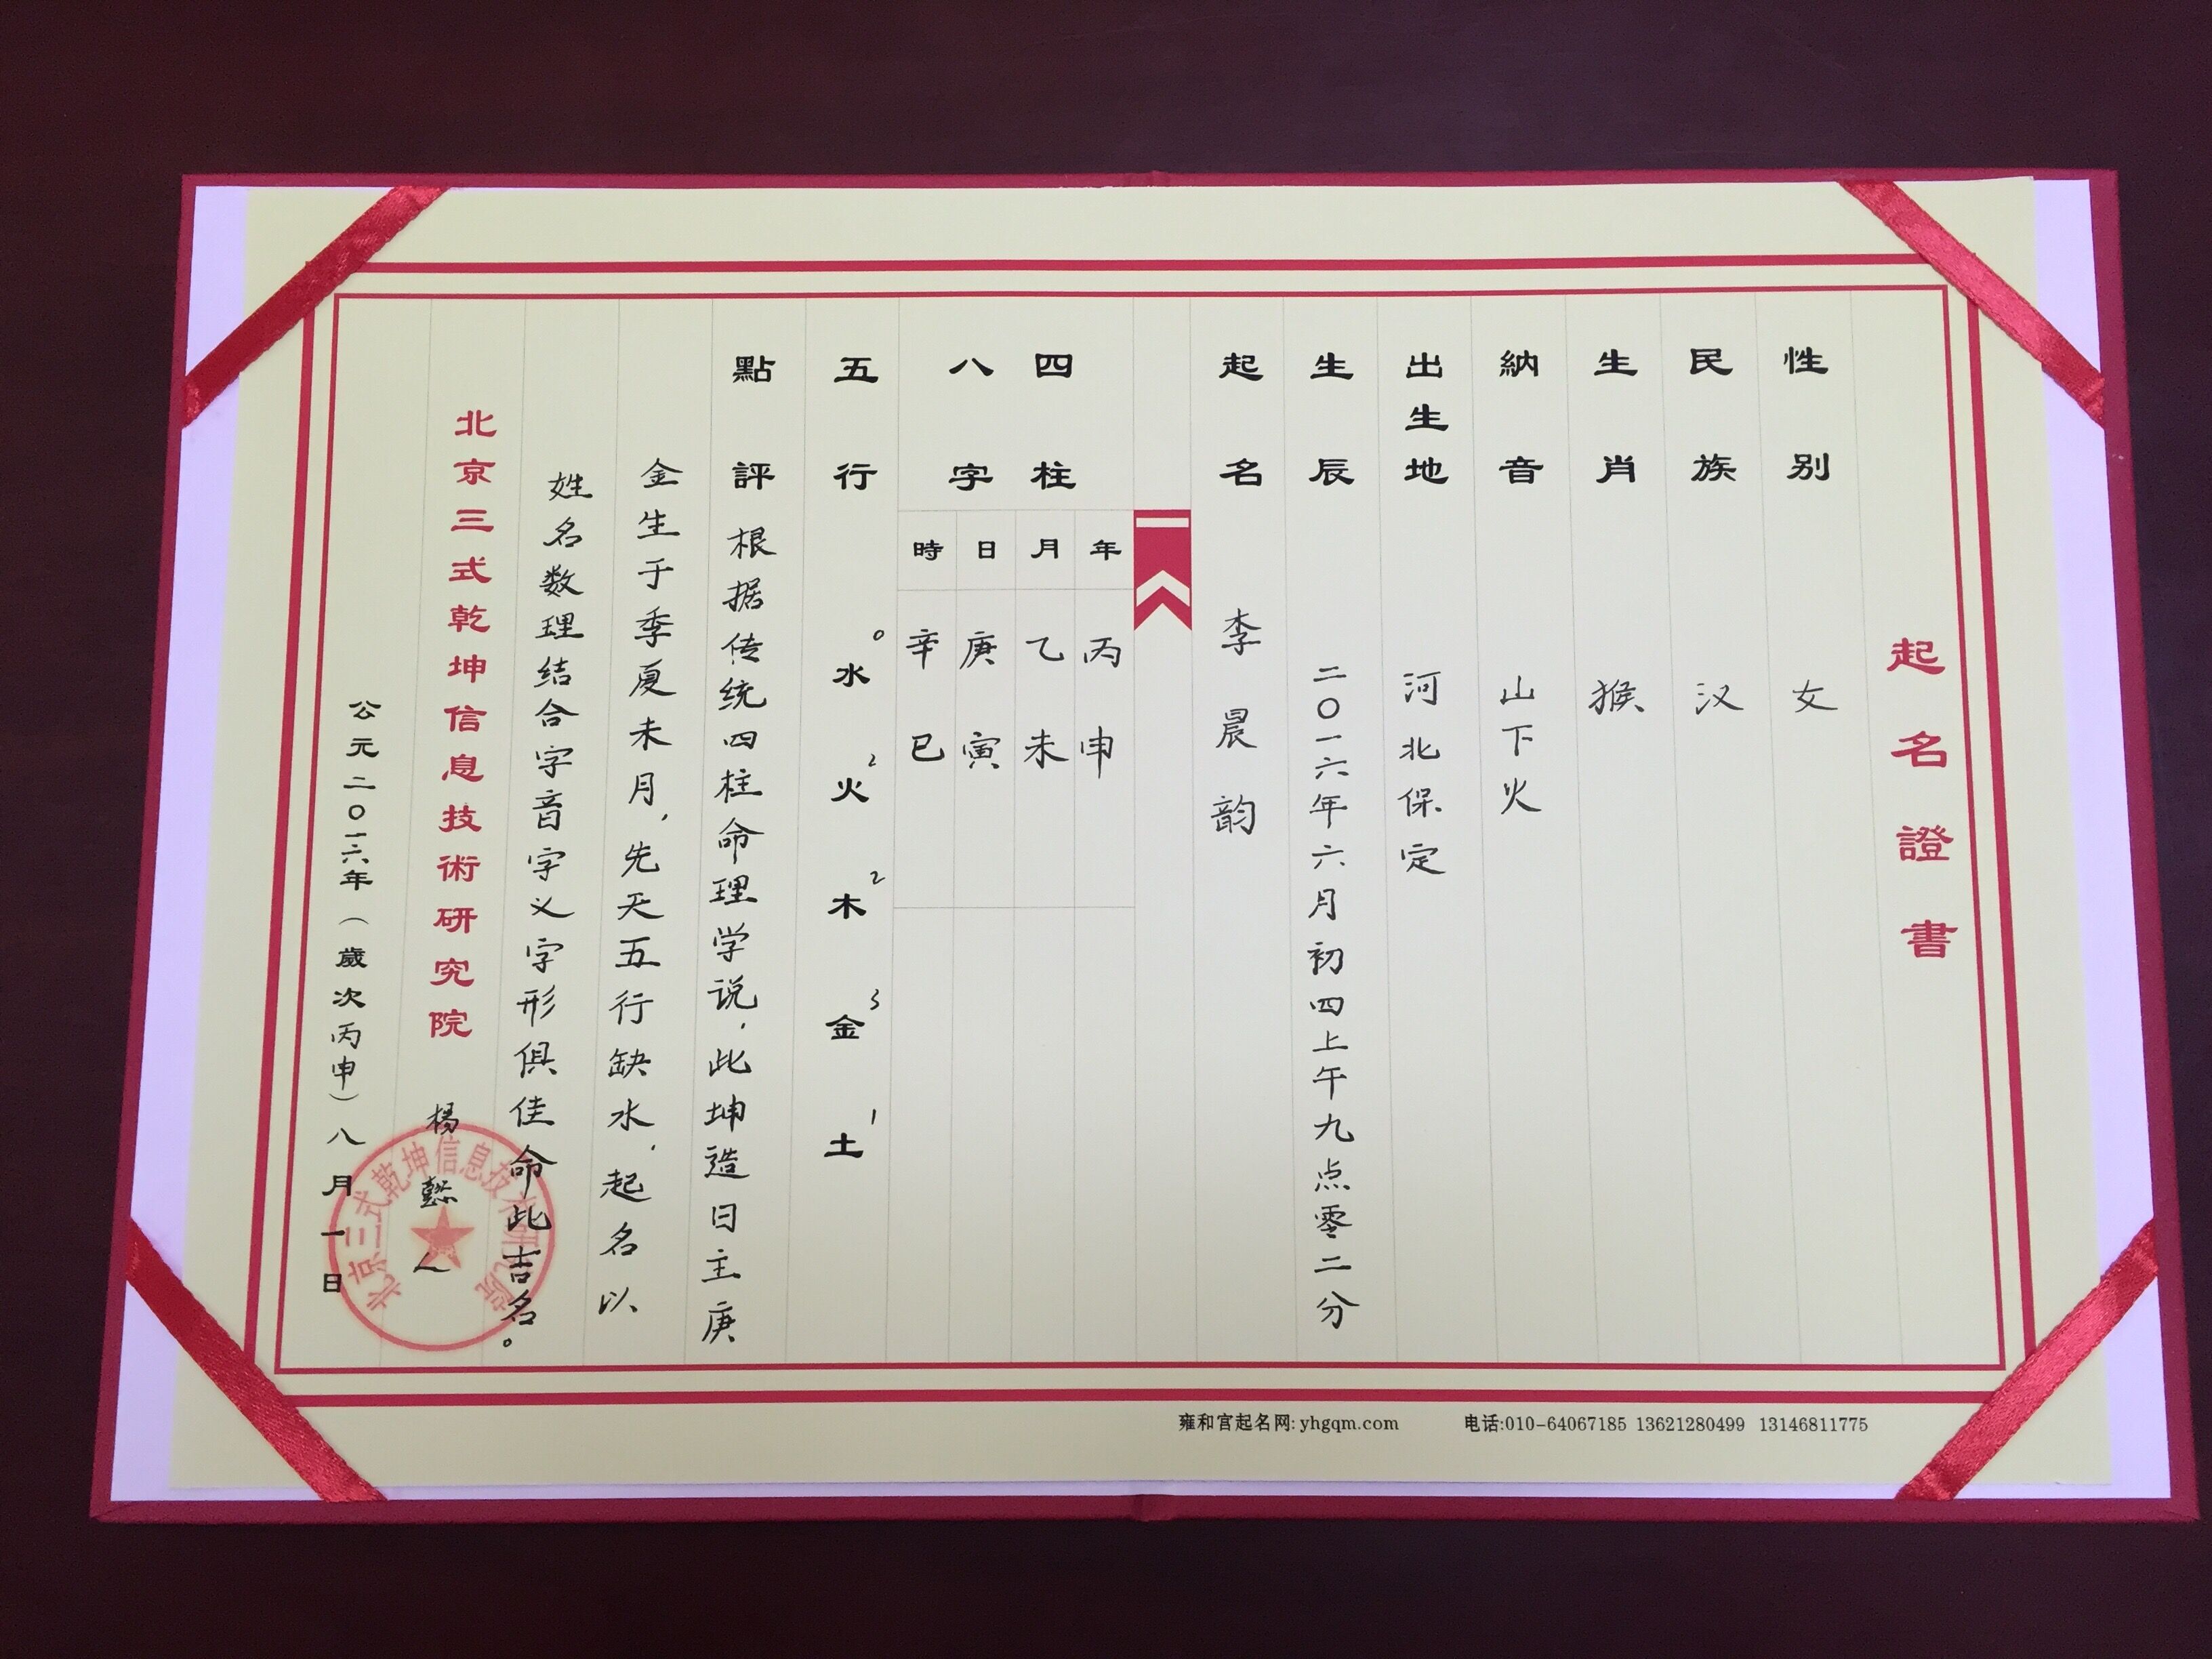 起名證書
性别 女
民族 汉
生肖 猴
納音 山下火
出生地 河北保定
生辰 二〇一六年六月初四上午九点零二分
起名 李晨韵
四柱
八字
年 丙申
月 乙未
日 庚寅
時 辛巳
五行 水0 火2 木2 金3 土1
點評 根据传统四柱命理学说,此坤造日主庚
金生于季夏未月,先天五行缺水,起名以
姓名数理结合字音字义字形俱佳命此吉名。
北京三式乾坤信息技術研究院 杨懿人
公元二〇一六年(歲次丙申)八月一日
北京三式乾坤信息技术研究院
雍和宫起名网:yhgqm.com 电话:010-64067185 13621280499 13146811775